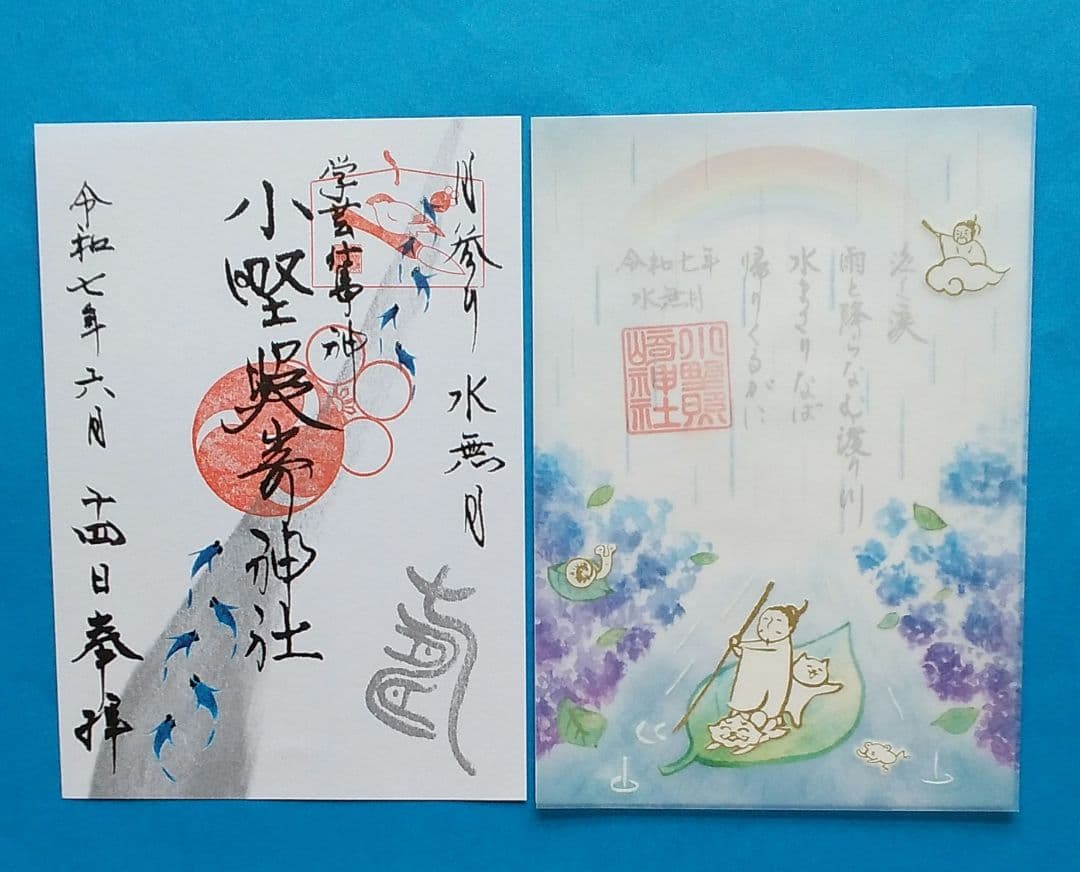 月参り 水無月
学芸仕事神
小野照崎神社
令和七年六月十四日奉拝
泣く涙
雨と降らなむ渡り川
水まさりなば
帰りくるがに
令和七年
水無月
小野照
崎神社